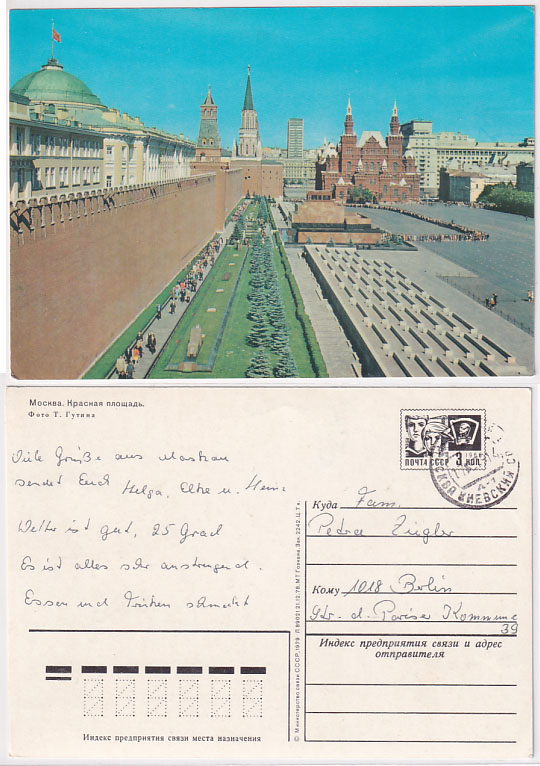 Москва. Красная площадь.
Фото Т. Гутина
Viele Grüße aus Moskau
sendet Euch Helga, Elke u. Heinz
Wetter ist gut, 25 Grad
Es ist alles sehr anstrengend.
Essen und Trinken schmeckt
ПОЧТА СССР 3 КОП.
1966
КИЕВСКИЙ
Куда Fam.
Petra Ziegler
Кому 1018 Berlin
Str. d. Pariser Kommune
39
Индекс предприятия связи и адрес
отправителя
Индекс предприятия связи места назначения
© Министерство связи СССР, 1979. 21.12.78. МТ Гознака. Зак. 2242. Ц. 7 к.